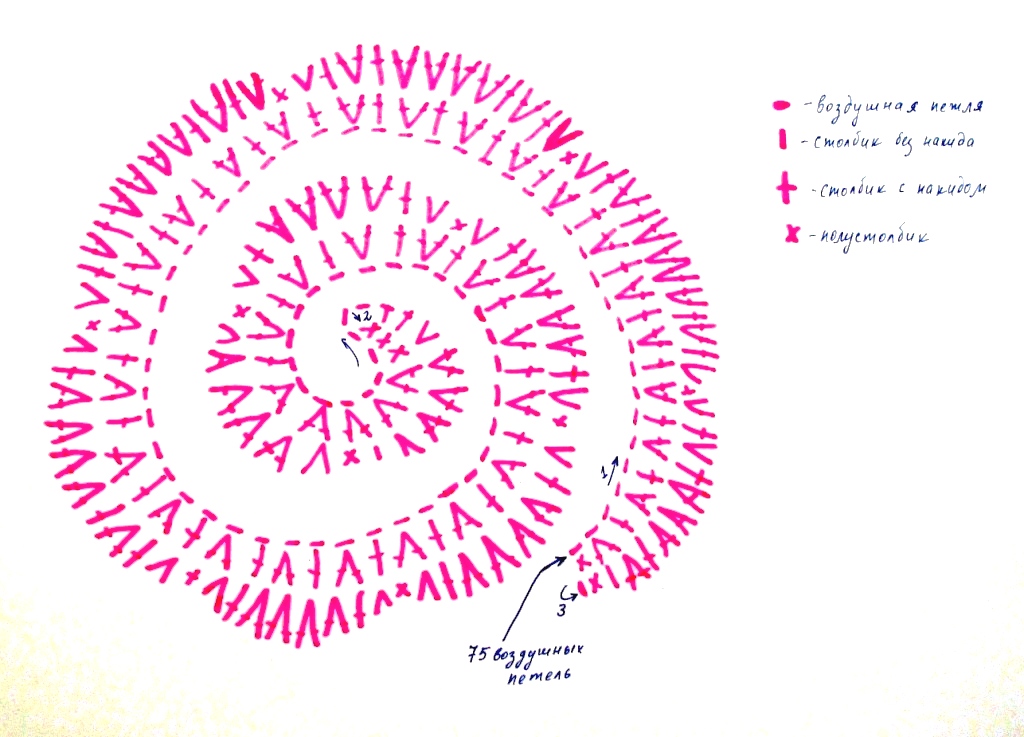 - воздушная петля
- столбик без накида
- столбик с накидом
- полустолбик
2
1
3
75 воздушных
петель